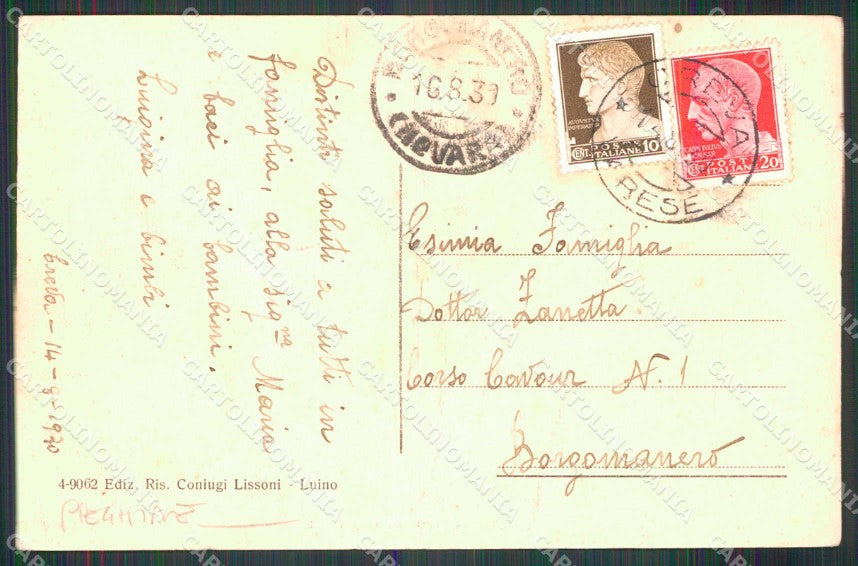 Distinti saluti a tutti in
famiglia, alla Sig.na Maria
e baci ai bambini.
Luigina e bimbi
Creva - 14-8-1930
BORGOMANERO
16.8.30
(NOVARA)
AUGVSTVS
IMPERATOR
POSTE
CENT. ITALIANE 10
CAIVS IVLIVS
CAESAR
POSTE
CENT. ITALIANE 20
CREVA
VARESE
Esimia Famiglia
Dottor Zanetta
Corso Cavour N. 1
Borgomanero
4-9062 Ediz. Ris. Coniugi Lissoni - Luino
CARTOLINOMANIA